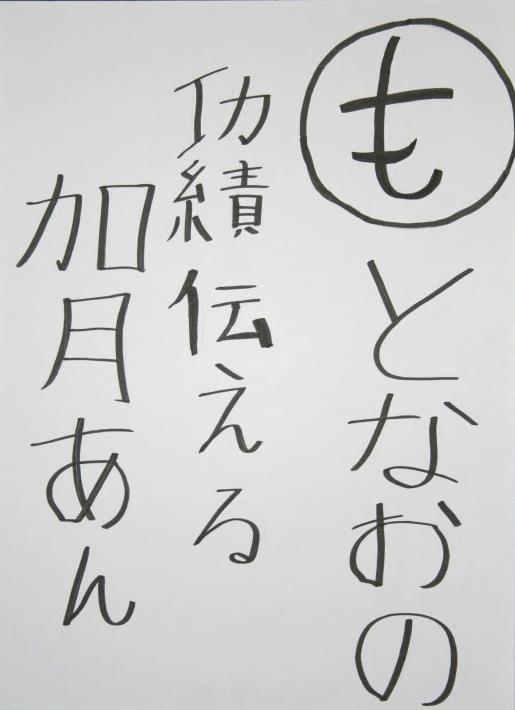 もとなおの
功績伝える
加月あん